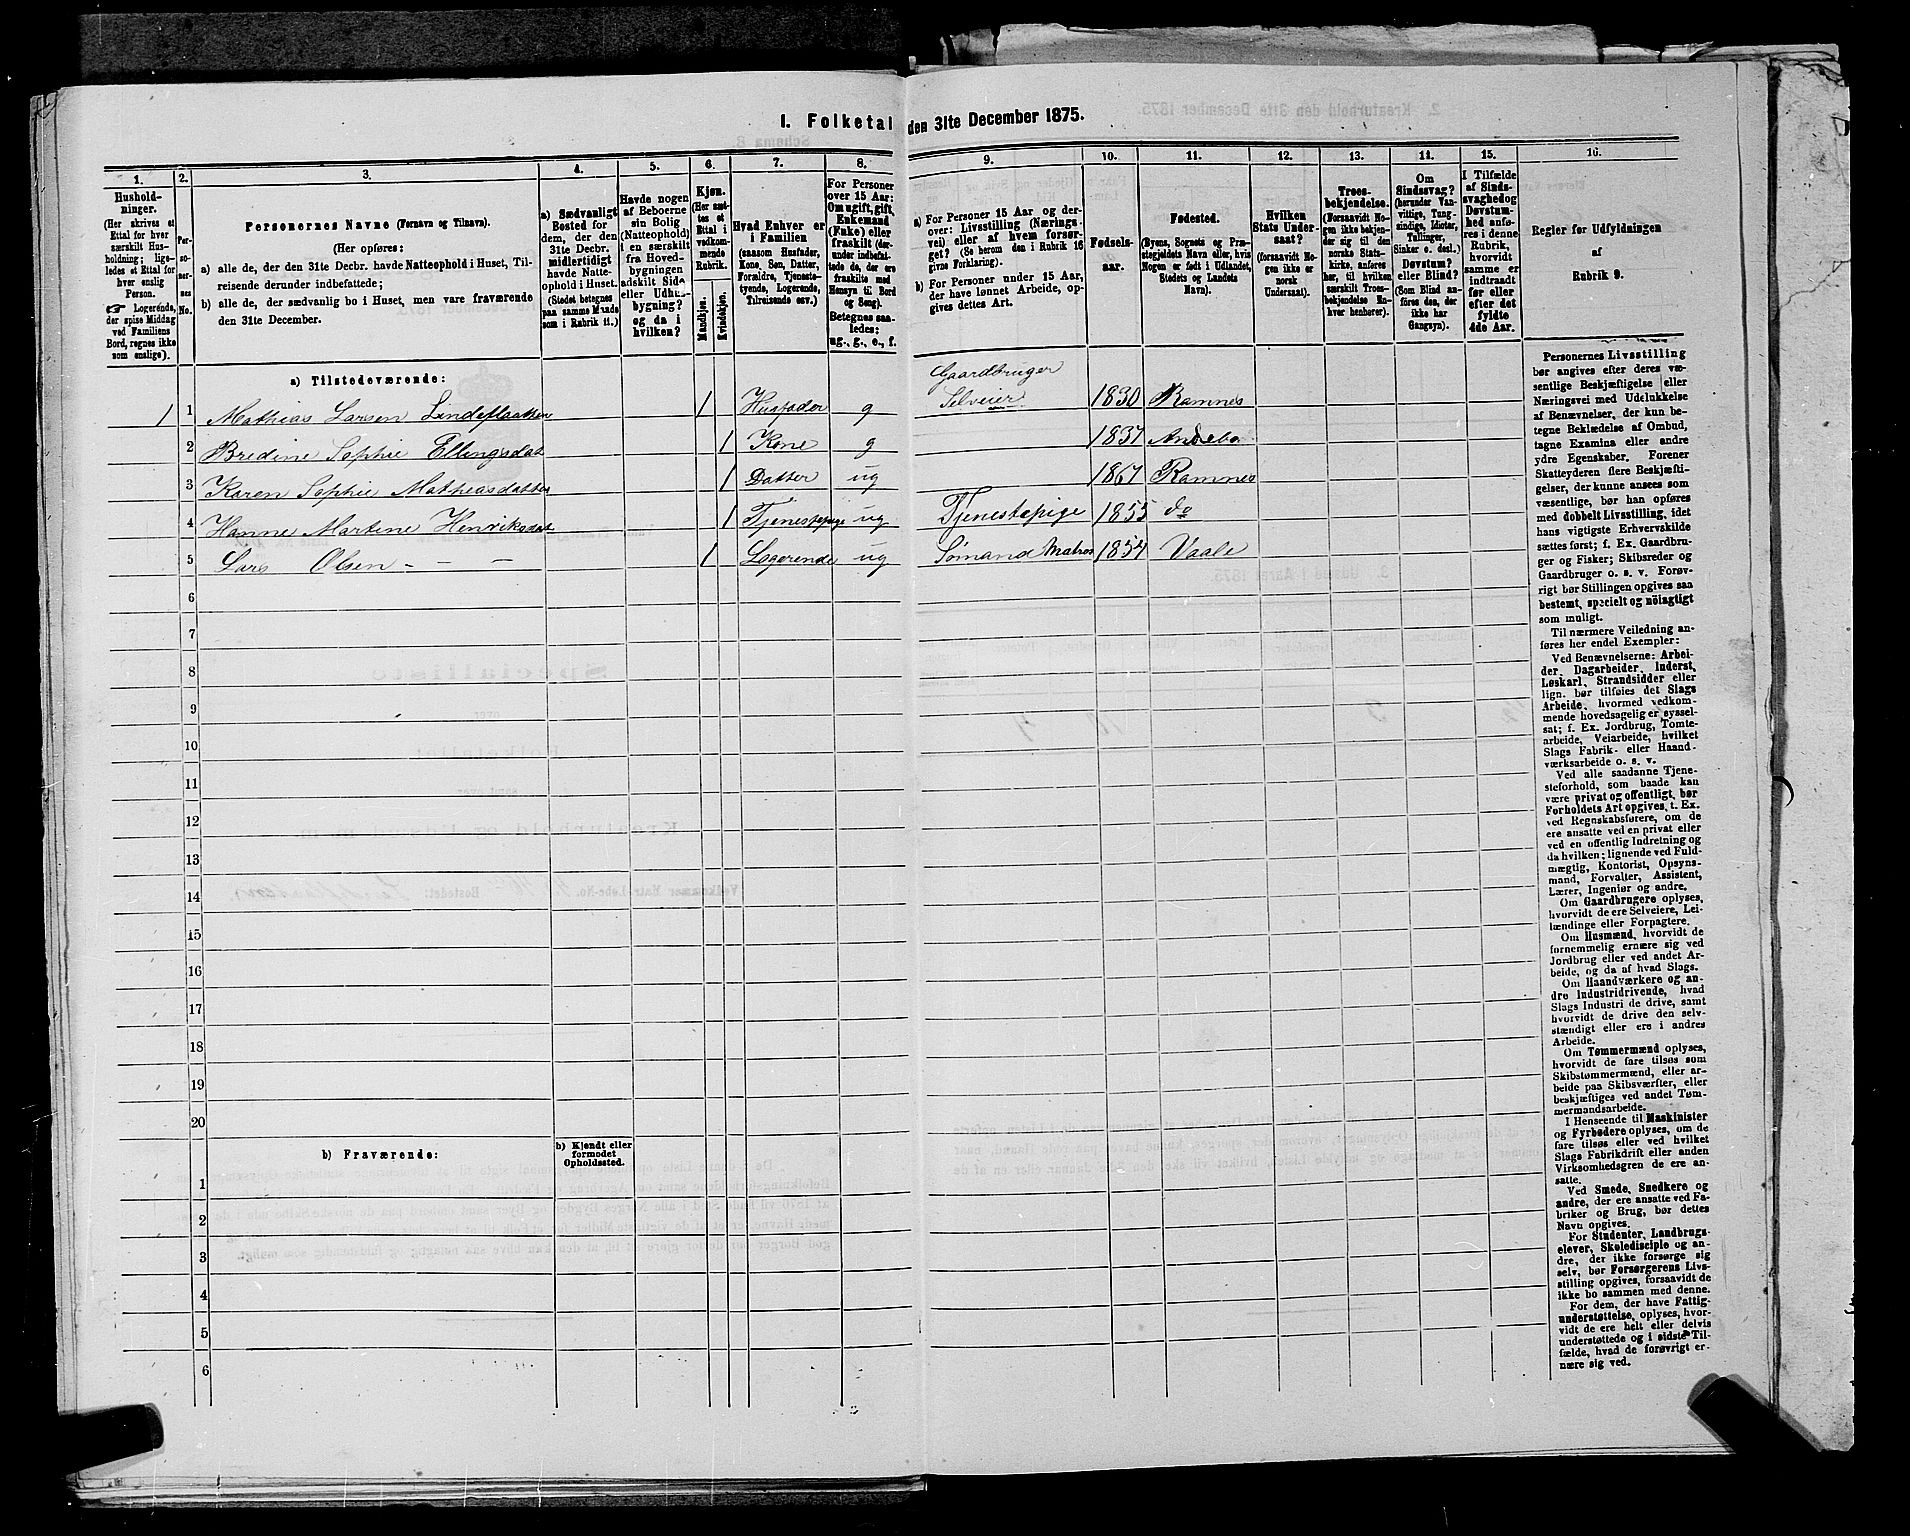 1. Folketal den 31te December 1875.
1.
2.
3.
4.
5.
6.
7.
8.
9.
10.
11.
12.
13.
14.
15.
16.
Hushold-
ninger.
(Her skrives et
Ettal for hver
særskilt Hus-
holdning; lige-
ledes et Ettal for
hver enslig
Person.
☞ Logerende,
der spise Middag
ved Familiens
Bord, regnes ikke
som enslige).
Per-
so-
ner-
nes
No.
Personernes Navne (Fornavn og Tilnavn).
(Her opføres:
a) alle de, der den 31te Decbr. havde Natteophold i Huset, Til-
reisende derunder indbefattede;
b) alle de, der sædvanlig bo i Huset, men vare fraværende
den 31te December.
a) Sædvanligt
Bosted for
dem, der den
31te Decbr.
midlertidigt
havde Natte-
ophold i Huset.
(Stedet betegnes
paa samme Maade
som i Rubrik 11.)
Havde nogen
af Beboerne
sin Bolig
(Natteophold)
i en særskilt
fra Hoved-
bygningen
adskilt Side
eller Udhus-
bygning?
og da i
hvilken?
Kjøn.
(Her sæt-
tes et
Ettal i
vedkom-
mende
Rubrik.
Mandkjøn.
Kvindekjøn.
Hvad Enhver er
i Familien
(saasom Husfader,
Kone, Søn, Datter,
Forældre, Tjeneste-
tyende, Logerende,
Tilreisende osv.)
For Personer
over 15 Aar:
Om ugift, gift,
Enkemand
(Enke) eller
fraskilt (der-
under indbefat-
tede de, der ere
fraskilte med
Hensyn til Bord
og Seng).
Betegnes saa-
ledes:
ug., g., e., f.
a) For Personer 15 Aar og der-
over: Livsstilling (Nærings-
vei) eller af hvem forsør-
get? (Se herom den i Rubrik 16
givne Forklaring).
b) For Personer under 15 Aar,
der have lønnet Arbeide, op-
gives dettes Art.
Fødsels-
aar.
Fødested.
(Byens, Sognets og Præ-
stegjeldets Navn eller, hvis
Nogen er født i Udlandet,
Stedets og Landets
Navn).
Hvilken
Stats Under-
saat?
(forsaavidt No-
gen ikke er
norsk
Undersaat).
Troes-
bekjendelse.
(Forsaavidt No-
gen ikke bekjen-
der sig til den
norske Stats-
kirke, anføres
her, til hvilken
særskilt Troes-
bekjendelse En-
hver henhører).
Om
Sindssvag?
(herunder Van-
vittige, Tung-
sindige, Idioter,
Tullinger,
Sinker o. desl.)
Døvstum?
eller Blind?
(Som Blind an-
føres den, der
ikke har
Gangsyn).
I Tilfælde
af Sinds-
svaghed og
Døvstum-
hed anfø-
res i denne
Rubrik,
hvorvidt
samme er
indtraadt
før eller
efter det
fyldte
4de Aar.
Regler for Udfyldningen
af
Rubrik 9.
a) Tilstedeværende:
1 1 Mathias Larsen Lindeflaatten 1 Husfader g Gaardbruger
Selveier 1830 Ramnes
2 Bredine Sophie Ellingsdat 1 Kone g 1837 Andebo
3 Karen Sophie Mathiasdatter 1 Datter ug 1867 Ramnes
4 Hanne Martine Henriksdat 1 Tjenestepige ug Tjenestepige 1855 do
5 Lars Olsen - - - 1 Logerende ug Sømand Matros 1854 Vaale
6
7
8
9
10
11
12
13
14
15
16
17
18
19
20
b) Fraværende:
b) Kjendt eller
formodet
Opholdssted.
1
2
3
4
5
6
Personernes Livsstilling
bør angives efter deres væ-
sentlige Beskjæftigelse eller
Næringsvei med Udelukkelse
af Benævnelser, der kun be-
tegne Beklædelse af Ombud,
tagne Examina eller andre
ydre Egenskaber. Forener
Skatteyderen flere Beskjæfti-
gelser, der kunne ansees som
væsentlige, bør han opføres
med dobbelt Livsstilling, idet
hans vigtigste Erhvervskilde
sættes først; f. Ex. Gaardbru-
ger og Fisker; Skibsreder og
Gaardbruger o. s. v. Forøv-
rigt bør Stillingen opgives saa
bestemt, specielt og nöiagtigt
som muligt.
Til nærmere Veiledning an-
føres her endel Exempler:
Ved Benævnelserne: Arbei-
der, Dagarbeider, Inderst,
Løskarl, Strandsidder eller
lign. bør tilføies det Slags
Arbeide, hvormed vedkom-
mende hovedsagelig er syssel-
sat; f. Ex. Jordbrug, Tomte-
arbeide, Veiarbeide, hvilket
Slags Fabrik- eller Haand-
værksarbeide o. s. v.
Ved alle saadanne Tjene-
steforhold, som baade kan
være privat og offentligt, bør
Forholdets Art opgives, t. Ex.
ved Regnskabsførere, om de
ere ansatte ved en privat eller
ved en offentlig Indretning og
da hvilken; lignende ved Fuld-
mægtig, Kontorist, Opsyns-
mand, Forvalter, Assistent,
Lærer, Ingeniør og andre.
Om Gaardbrugere oplyses,
hvorvidt de ere Selveiere, Lei-
lændinge eller Forpagtere.
Om Husmænd, hvorvidt de
fornemmelig ernære sig ved
Jordbrug eller ved andet Ar-
beide, og da af hvad Slags.
Om Haandværkere og an-
dre Industridrivende, hvad
Slags Industri de drive, samt
hvorvidt de drive den selv-
stændigt eller ere i andres
Arbeide.
Om Tømmermænd oplyses,
hvorvidt de fare tilsøs som
Skibstømmermænd, eller ar-
beide paa Skibsværfter, eller
beskjæftiges ved andet Tøm-
mermandsarbeide.
I Henseende til Maskinister
og Fyrbødere oplyses, om de
fare tilsøs eller ved hvilket
Slags Fabrikdrift eller anden
Virksomhedsgren de ere an-
satte.
Ved Smede, Snedkere og
andre, der ere ansatte ved Fa-
briker og Brug, bør dettes
Navn opgives.
For Studenter, Landbrugs-
elever, Skoledisciple og an-
dre, der ikke forsørge sig
selv, bør Forsørgerens Livs-
stilling opgives, forsaavidt de
ikke bo sammen med denne.
For dem, der have Fattig-
understøttelse, oplyses, hvor-
vidt de ere helt eller delvis
understøttede og i sidste Til-
fælde, hvad de forøvrigt er-
nære sig ved.